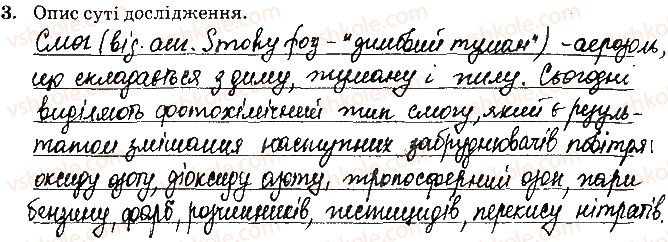 3. Опис суті дослідження.
Смог (від. анг. Smoky fog - "димовий туман") - аерозоль,
що складається з диму, туману і пилу. Сьогодні
виділяють фотохімічний тип смогу, який є резуль-
татом змішання наступних забруднювачів повітря:
оксиду азоту, діоксиду азоту, тропосферний озон, пари
бензину, фарб, розчинників, пестицидів, перекису нітратів.